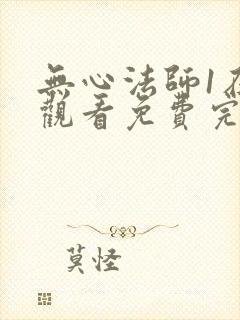 無心法師1
觀看免費完
莫怪